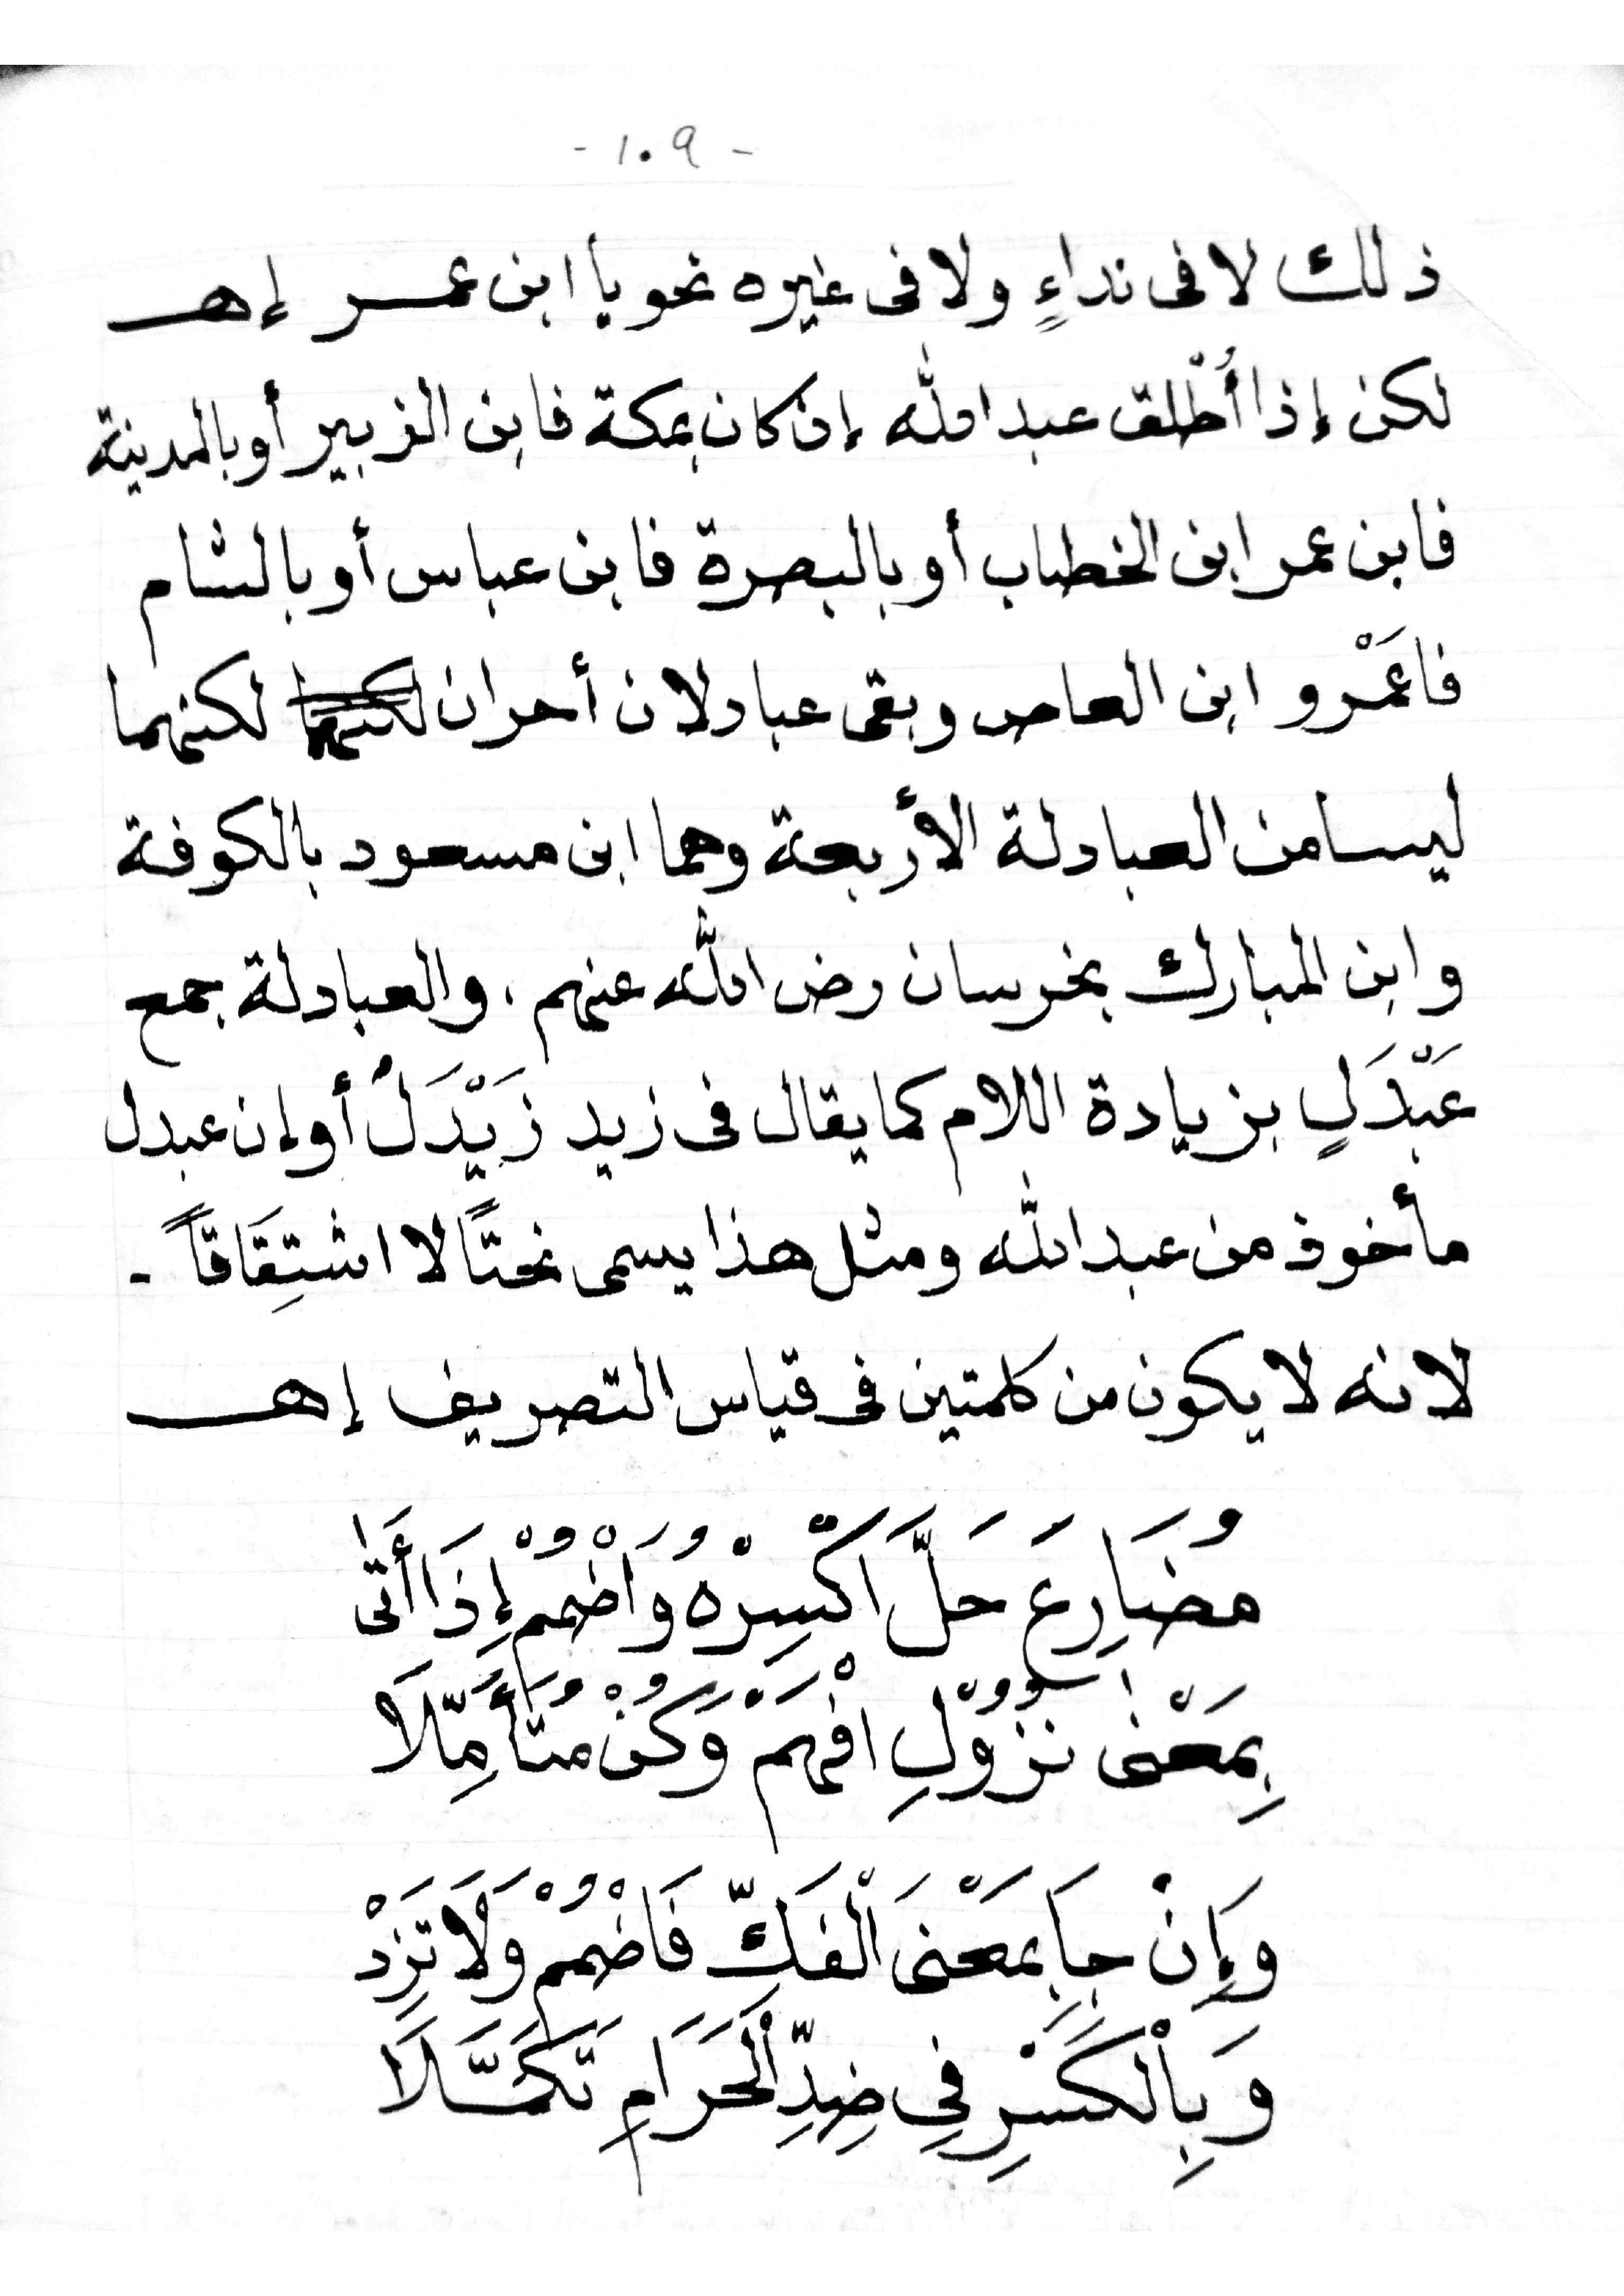 - ١٠٩ -
ذلك لا فى نداءٍ ولا فى غيره نحو يا ابن عمر إهـ
لكن إذا أُطْلق عبد الله إن كان بمكة فابن الزبير أو بالمدينة
فابن عمر ابن الخطاب أو بالبصرة فابن عباس أو بالشام
فاعَمْرو ابن العاص وبقى عبادلان أحران لكنهما لكنهما
ليسا من العبادلة الأربعة وهما ابن مسعود بالكوفة
وابن المبارك بخرسان رض الله عنهم، والعبادلة جمع
عَبْدَلٍ بزيادة اللام كما يقال فى زيد زَيْدَلٌ أو إن عبدل
مأخوذ من عبد الله ومثل هذا يسمى نحتًا لا اشتِقَاقاً -
لانه لا يكون من كلمتين فى قياس التصريف إهـ
مُضَارِعَ حَلَّ اكْسِرْهُ وَاضْمُمْ إِذَا أَتَى
بِمَعْنىٰ نُزُوْلِ افْهَمْ وَكُنْ مُتَأَمِّلَا
وَإِنْ جَا بِمَعْنَى الْفَكِّ فَاضْمُمْ وَلَا تَزِدْ
وَبِالْكَسْرِ فِي ضِدِّ الْحَرَامِ تَكَمَّلَا